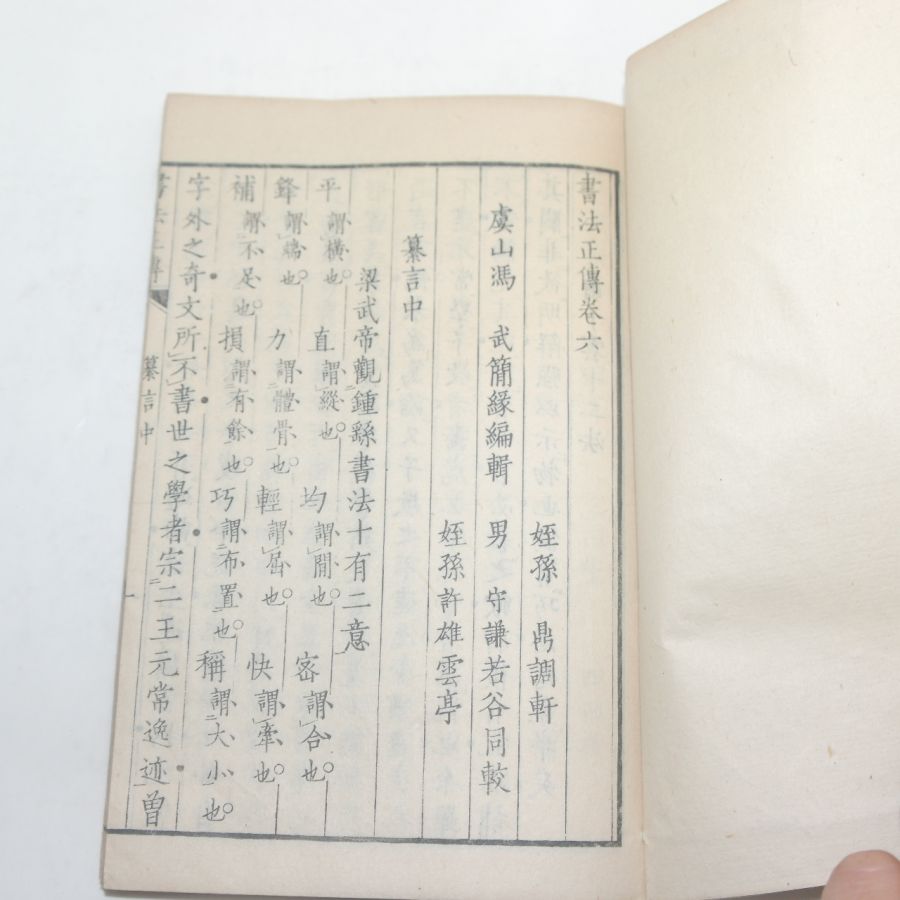 書法正傳卷六
姪孫 鼎調軒
虞山馮 武簡緣編輯 男 守謙若谷同較
姪孫許雄雲亭
纂言中
梁武帝觀鍾繇書法十有二意
平謂橫也 直謂縱也 均謂間也 密謂合也
鋒謂端也 力謂體骨也 輕謂屈也 快謂牽也
補謂不足也 損謂有餘也 巧謂布置也 稱謂大小也
字外之奇文所不書世之學者宗二王元常逸迹曽
書法正傳
纂言中
一